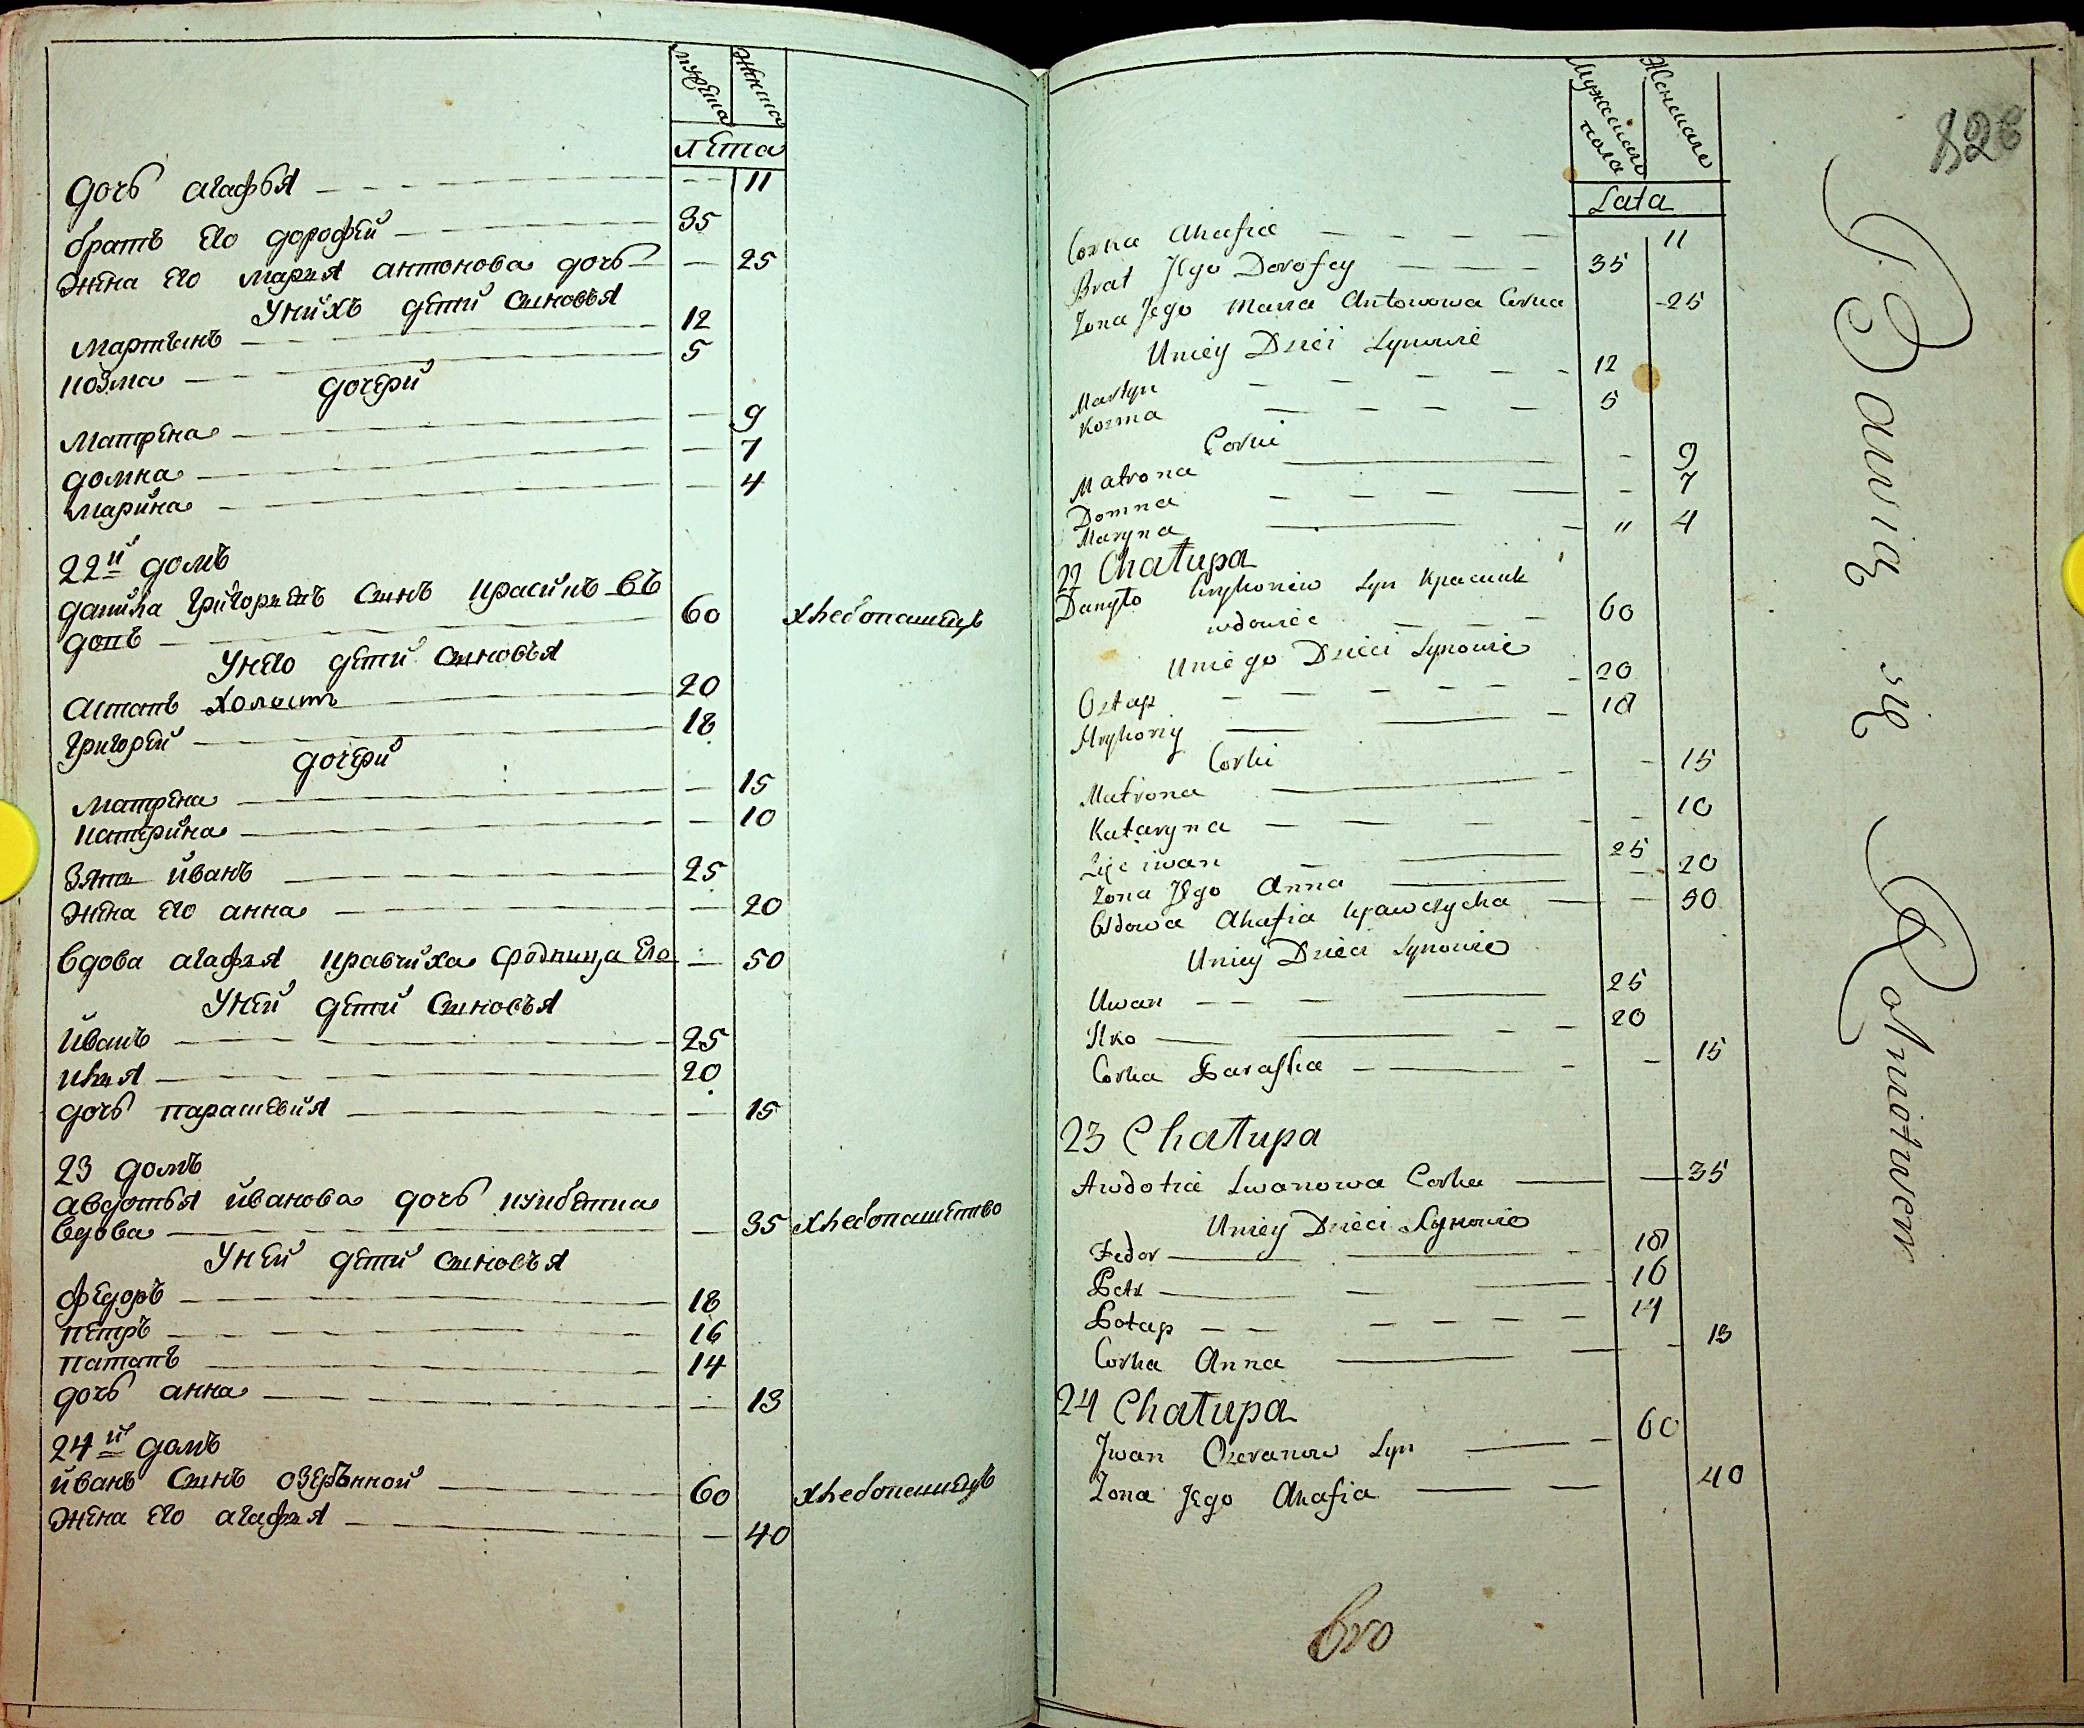 мужеска женска
лета
дочь агафья 11
братъ его дорофей 35
жена его марья антонова дочь 25
Унихъ дети сыновья
мартынъ 12
козма 5
дочери
матрена 9
домна 7
марина 4
22й домъ
данила григорьевъ сынъ въ 60 хлебопашецъ
У него дети сыновья
астапъ холостъ 20
григорей 18
дочери
матрена 15
катерина 10
зять иванъ 25
жена его анна 20
вдова агафья кравчиха сродница его 50
Уней дети сыновья
иванъ 25
илья 20
дочь параскевия 15
23 домъ
авдотья иванова дочь
вдова 35 хлебопашество
Уней дети сыновья
федоръ 18
петръ 16
патапъ 14
дочь анна 13
24й домъ
иванъ сынъ 60 хлебопашецъ
жена его агафья 40
Мужескаго пола Женскаго
Lata
Corka Ahafia 11
Brat Jego Dorofey 35
Zona Jego Maria Antonowa Corka 25
Uniey Dzieci Synowie
Martyn 12
Kozma 5
Corki
Matrona 9
Domna 7
Maryna " 4
22 Chałupa
Danyło Hryhoriew Syn
wdowiec 60
Uniego Dzieci Synowie
Ostap 20
Hryhoriy 18
Corki
Matrona 15
Kataryna 10
Zięć iwan 25
Zona Jego Anna 20
Wdowa Ahafia krawczycha 50
Uniey Dzieci Synowie
Iwan 25
Ilko 20
Corka Paraska 15
23 Chałupa
Awdotia Iwanowa Corka 35
Uniey Dzieci Synowie
Fedor 18
Petr 16
Potap 14
Corka Anna 13
24 Chałupa
Jwan Syn 60
Zona Jego Ahafia 40
Bawią się Rolnictwem